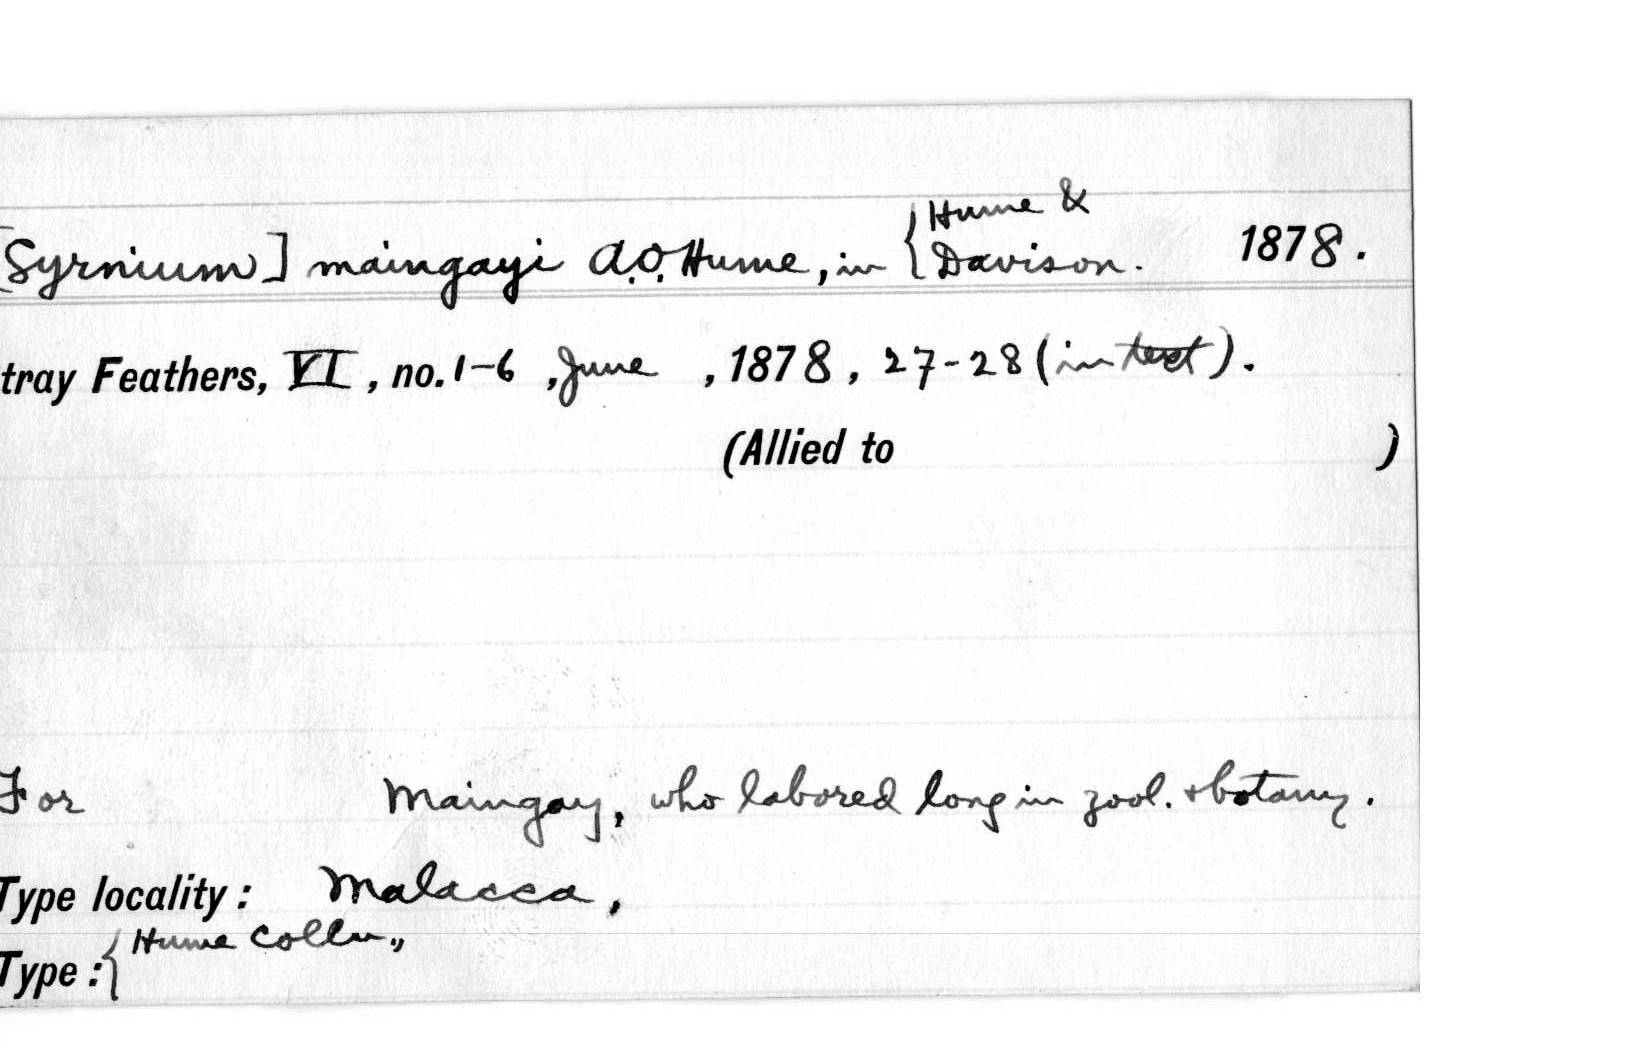 [Syrnium] maingayi A.O. Hume, in { Hume & Davison. 1878.
tray Feathers, VI, no. 1-6, June, 1878, 27-28 (in text).
(Allied to )
For Maingay, who labored long in zool. & botany.
Type locality: Malacca,
Type: { Hume Colln.,